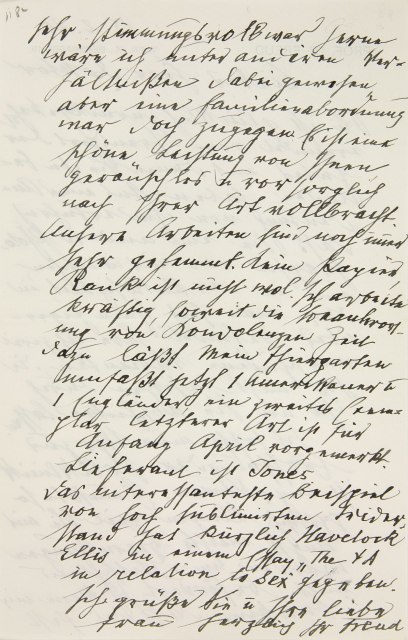 sehr stimmungsvoll war. Gerne
wäre ich unter anderen Ver-
hältnißen dabei gewesen,
aber eine Familienabordnung
war doch zugegen. Es ist eine
schöne Leistung von Ihnen,
geräuschlos u vorsorglich
nach Ihrer Art vollbracht.
Unsere Arbeiten sind noch immer
sehr gehemmt. Kein Papier,
Rank ist nicht wol. Ich arbeite
kräftig soweit die Beantwort-
ung von Kondolenzen Zeit
dazu läßt. Mein Thiergarten
umfaßt jetzt 1 Amerikaner u
1 Engländer ein zweites Exem-
plar letzterer Art ist für
Anfang April vorgemerkt.
Lieferant ist Jones
Das interessanteste Beispiel
von hoch sublimirtem Wider-
stand hat kürzlich Havelock
Ellis in einem Essay „The ΨA
in relation to sex gegeben.
Ich grüße Sie u Ihre liebe
Frau herzlich Ihr Freud